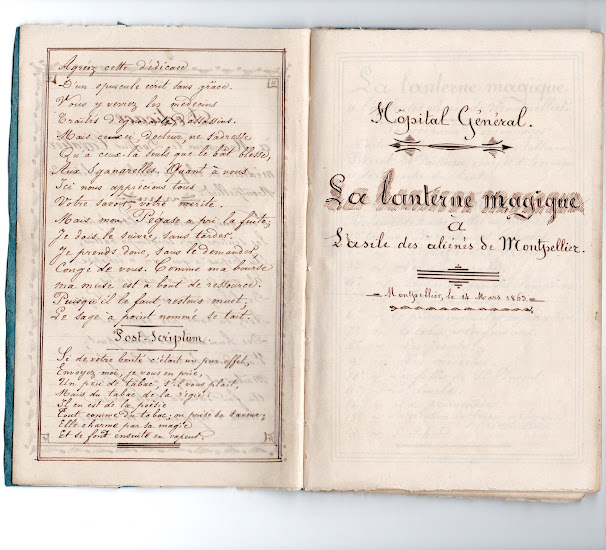 Agréez cette dédicace
D'un opuscule écrit sans grâce.
Vous y verrez les médecins
Traités d'ânes, d'assassins.
Mais ceci, Docteur, ne s'adresse
Qu'à ceux-là seuls que le bât blesse,
Aux Sganarelles. Quant à vous
Ici nous apprécions tous
Votre savoir, votre mérite.
Mais mon Pégase a pris la fuite;
Je dois le suivre, sans tarder.
Je prends donc, sans le demander,
Congé de vous. Comme ma bourse
ma muse est à bout de ressource.
Puisqu'il le faut restons muet,
Le sage à point nommé se tait.
Post-Scriptum
Si de votre bonté c'était un pur effet,
Envoyez moi, je vous en prie,
Un peu de tabac, s'il vous plaît,
Mais du tabac de la régie.
Il en est de la poésie
Tout comme du tabac; on puise sa saveur;
Elle charme par sa magie
Et se fond ensuite en vapeur.
Hôpital Général.
La lanterne magique
à
L'asile des aliénés de Montpellier.
Montpellier, le 14 Mars 1863.